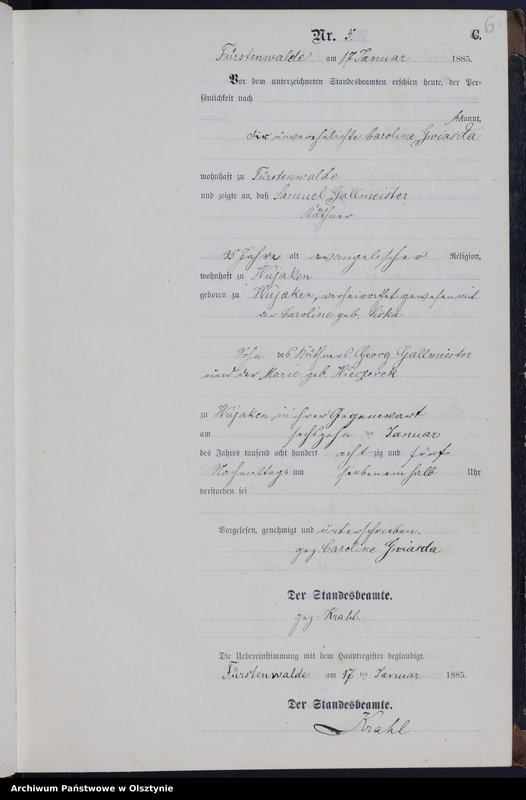 6
Nr. 5. C.
Fürstenwalde am 17 Januar 1885.
Vor dem unterzeichneten Standesbeamten erschien heute, der Per-
sönlichkeit nach
bekannt,
die unverehelichte Caroline Gwiasda
wohnhaft zu Fürstenwalde
und zeigte an, daß Samuel Gallmeister
Käthner
35 Jahre alt evangelischer Religion,
wohnhaft zu Wujaken
geboren zu Wujaken, verheirathet gewesen mit
der Caroline geb.
Sohn des Käthners Georg Gallmeister
und der Marie geb. Wieczorek
zu Wujaken in ihrer Gegenwart
am sechszehn ten Januar
des Jahres tausend acht hundert acht zig und fünf
Nachmittags um sieben ein halb Uhr
verstorben sei
Vorgelesen, genehmigt und unterschrieben.
gez. Caroline Gwiasda
Der Standesbeamte.
gez Krahl.
Die Uebereinstimmung mit dem Hauptregister beglaubigt.
Fürstenwalde am 17 ten Januar 1885.
Der Standesbeamte.
Krahl
Archiwum Państwowe w Olsztynie